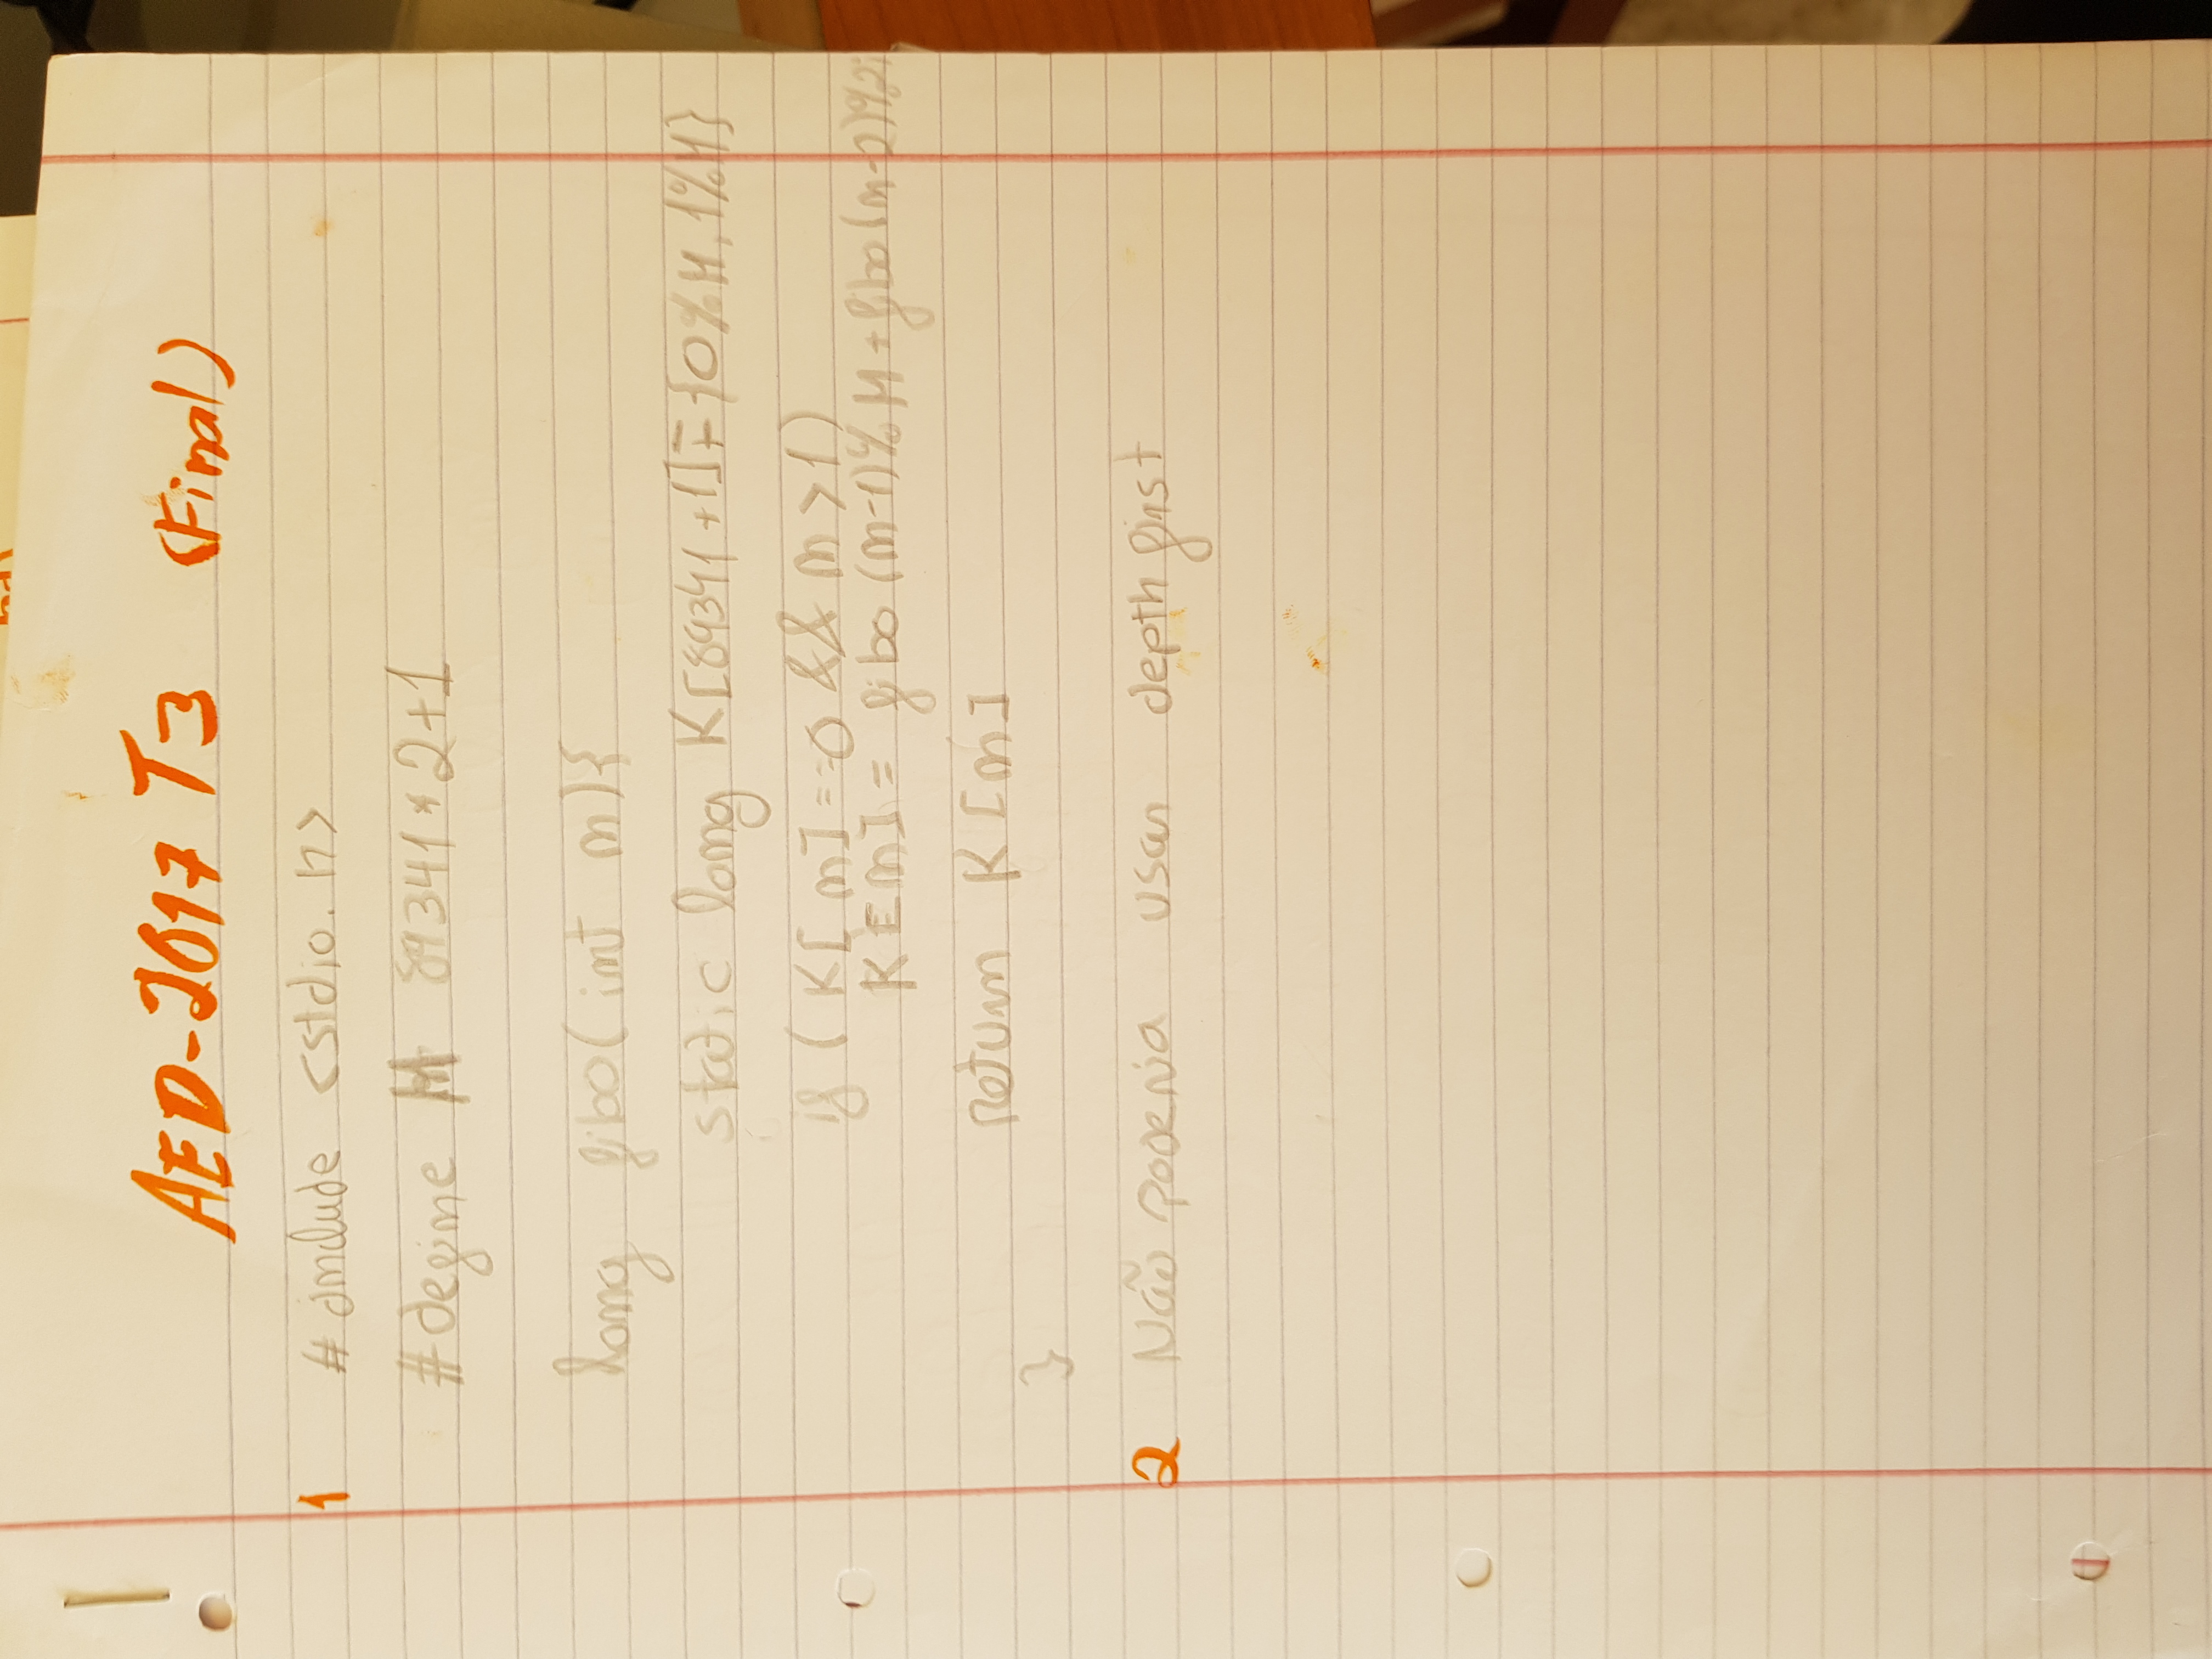 AED-2017 T3 (Final)
1 #include <stdio.h>
#define M 89341*2+1
long fibo(int n){
static long K[89341+1]={0%M,1%M}
if (K[n]==0 && n>1)
K[n]= fibo(n-1)%M+fibo(n-2)%
return K[n]
}
2 Não poderia usar depth first